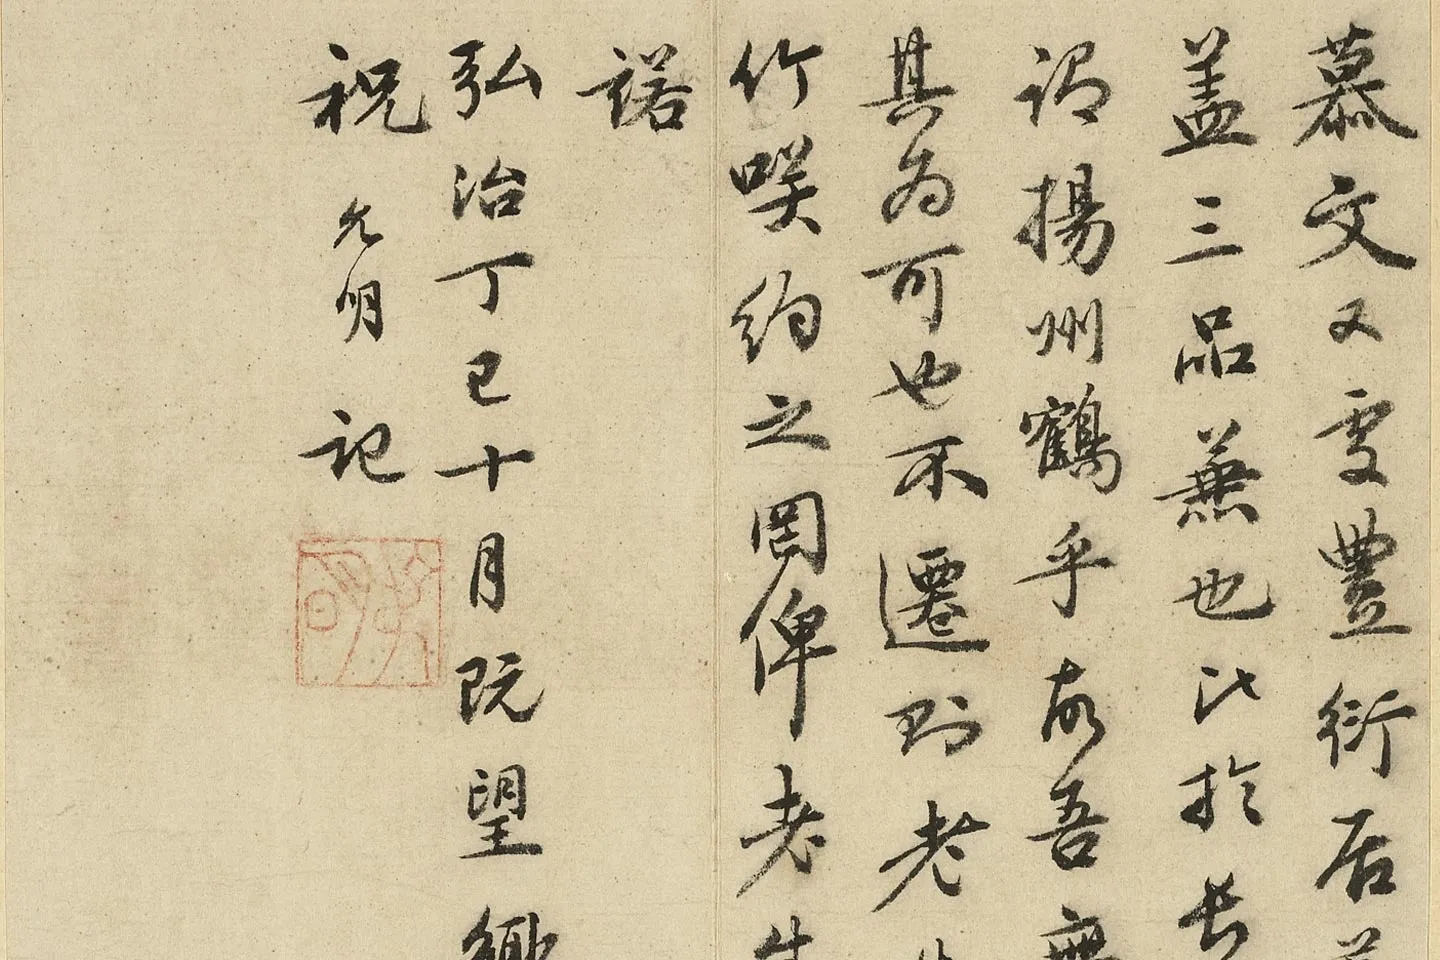 慕文又處豐衍居
蓋三品兼也比於長
謂揚州鶴乎故吾無
其為可也不遷則老
竹咲約之罔俾老生
諾
弘治丁巳十月既望鄉
祝允明記